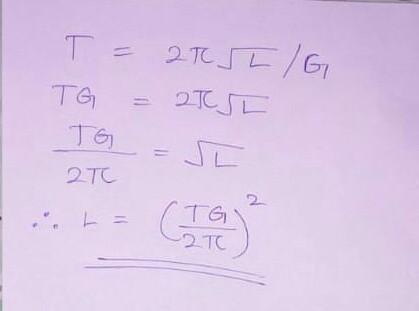 T = 2π√L/G
TG = 2π√L
TG/2π = √L
∴ L = (TG/2π)²